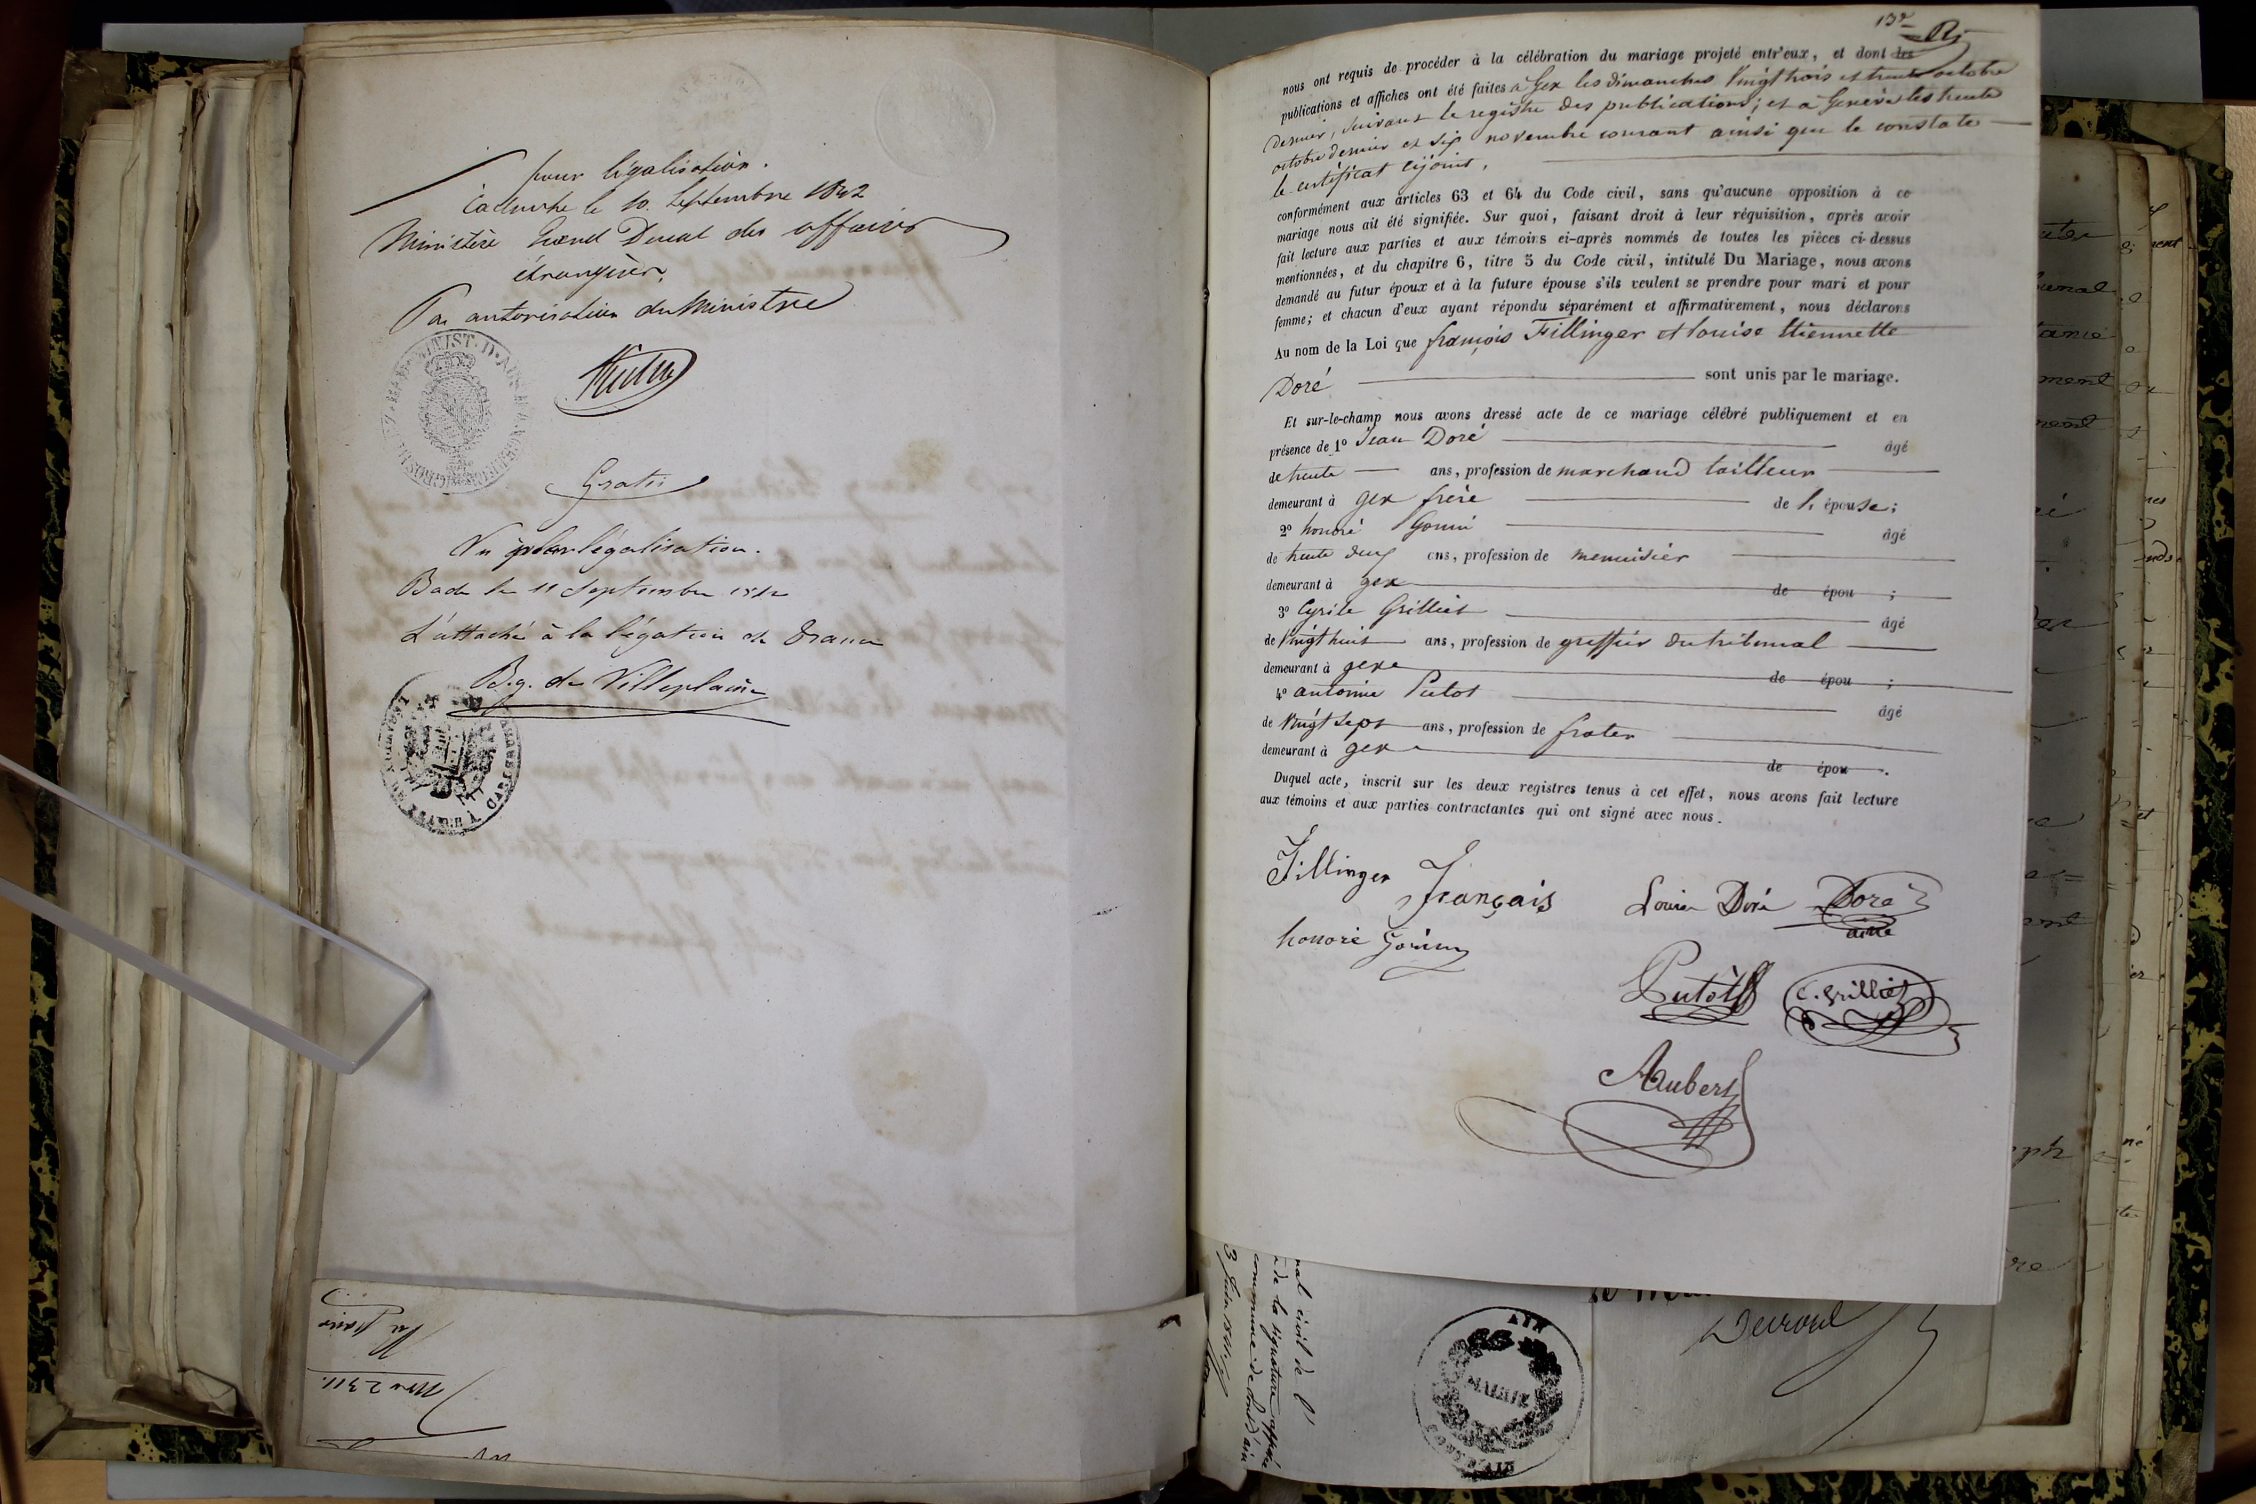 pour légalisation.
Carlsruhe le 10. Septembre 1842
Ministère Grand Ducal des affaires
étrangères,
Par autorisation du Ministre
Gratis
Vu pour légalisation.
Bade le 11 Septembre 1842
L'attaché à la légation de France
B.g. de Villeplaine
Vu pour
Nro 2311.
132
nous ont requis de procéder à la célébration du mariage projeté entr'eux, et dont les
publications et affiches ont été faites à Gex les dimanches Vingt trois et trente octobre
dernier, suivant le registre des publications; et a Genève les trente
octobre dernier et six novembre courant ainsi que le constate
le certificat cijoint.
conformément aux articles 63 et 64 du Code civil, sans qu'aucune opposition à ce
mariage nous ait été signifiée. Sur quoi, faisant droit à leur réquisition, après avoir
fait lecture aux parties et aux témoins ci-après nommés de toutes les pièces ci-dessus
mentionnées, et du chapitre 6, titre 5 du Code civil, intitulé Du Mariage, nous avons
demandé au futur époux et à la future épouse s'ils veulent se prendre pour mari et pour
femme; et chacun d'eux ayant répondu séparément et affirmativement, nous déclarons
Au nom de la Loi que françois Fillinger et Louise Etiennette
Doré sont unis par le mariage.
Et sur-le-champ nous avons dressé acte de ce mariage célébré publiquement et en
présence de 1º Jean Doré âgé
de trente ans, profession de marchand tailleur
demeurant à gex frère de l'épouse;
2º honoré Gonin âgé
de trente deux ans, profession de menuisier
demeurant à gex de épou ;
3º Cyrile Grilliet âgé
de Vingt huit ans, profession de greffier du tribunal
demeurant à gex de épou ;
4º antoine Putot âgé
de Vingt sept ans, profession de frater
demeurant à gex de épou .
Duquel acte, inscrit sur les deux registres tenus à cet effet, nous avons fait lecture
aux témoins et aux parties contractantes qui ont signé avec nous.
Fillinger Français Louise Doré Doré
ainé
honoré Gonin
Putot C. Grilliet
Aubert
nal civil de l'
de la signature apposée
commune de
AIN
MAIRIE